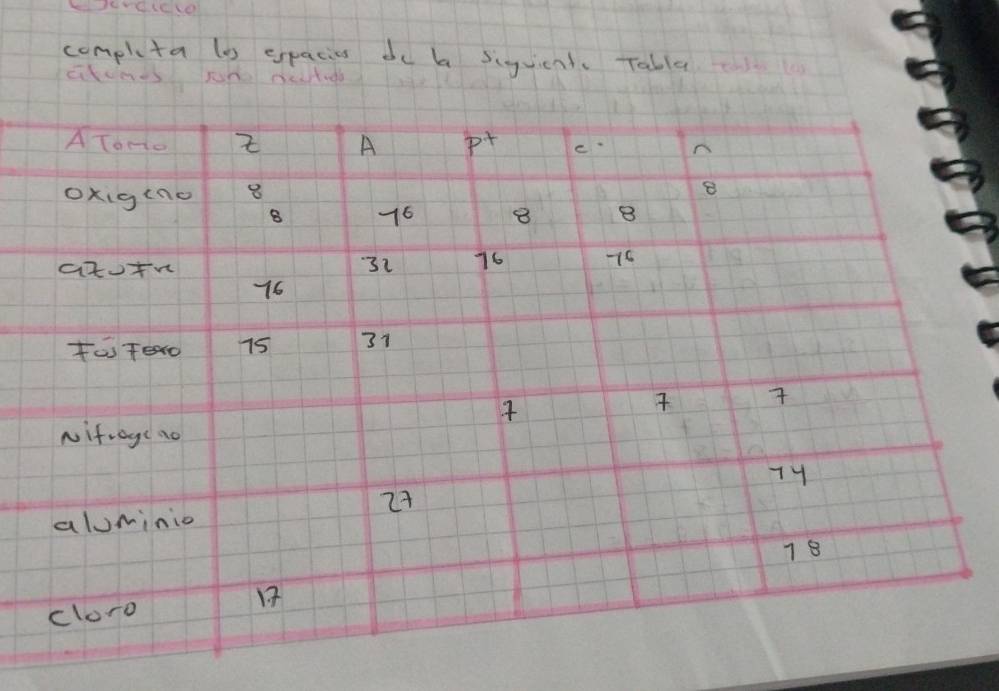 Ejercicio
completa los espacios de la siguiente Tabla todos los
átomos son neutros
ATomo Z A P+ e- n
oxigeno 8 8
8 16 8 8
azufre 32 16 16
16
Fósforo 15 31
7 7 7
Nitrogeno
14
27
aluminio
18
cloro 17